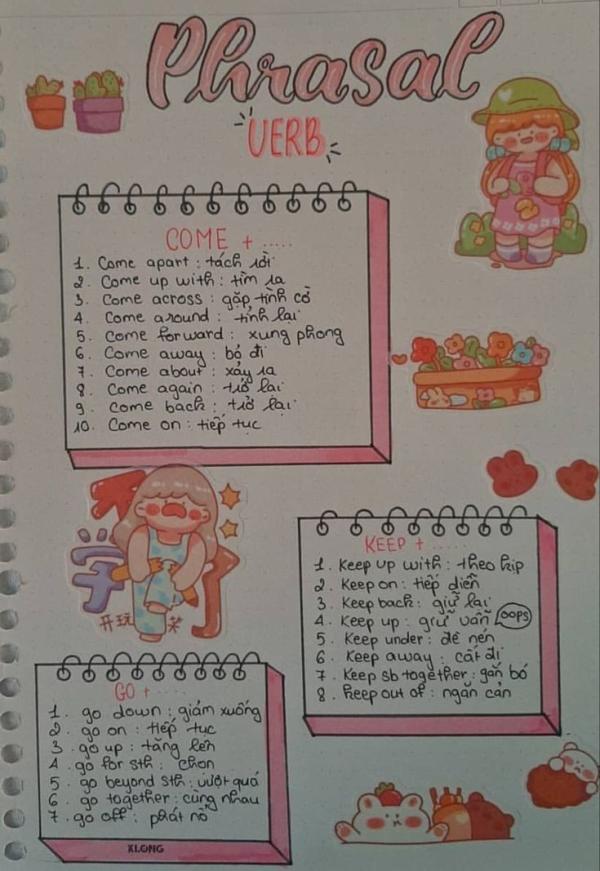 Phrasal
VERB
COME + .....
1. Come apart : tách rời
2. Come up with : tìm ra
3. Come across : gặp tình cờ
4. Come around : tỉnh lại
5. Come forward : xung phong
6. Come away : bỏ đi
7. Come about : xảy ra
8. Come again : trở lại
9. Come back : trở lại
10. Come on : tiếp tục
KEEP + .....
1. Keep up with : theo kịp
2. Keep on : tiếp diễn
3. Keep back : giữ lại
4. Keep up : giữ vẫn oops
5. Keep under : đè nén
6. Keep away : cất đi
7. Keep sb together : gắn bó
8. Keep out of : ngăn cản
开玩笑
GO + .....
1. go down : giảm xuống
2. go on : tiếp tục
3. go up : tăng lên
4. go for sth : chọn
5. go beyond sth : vượt quá
6. go together : cùng nhau
7. go off : phát nổ
XI.ONG